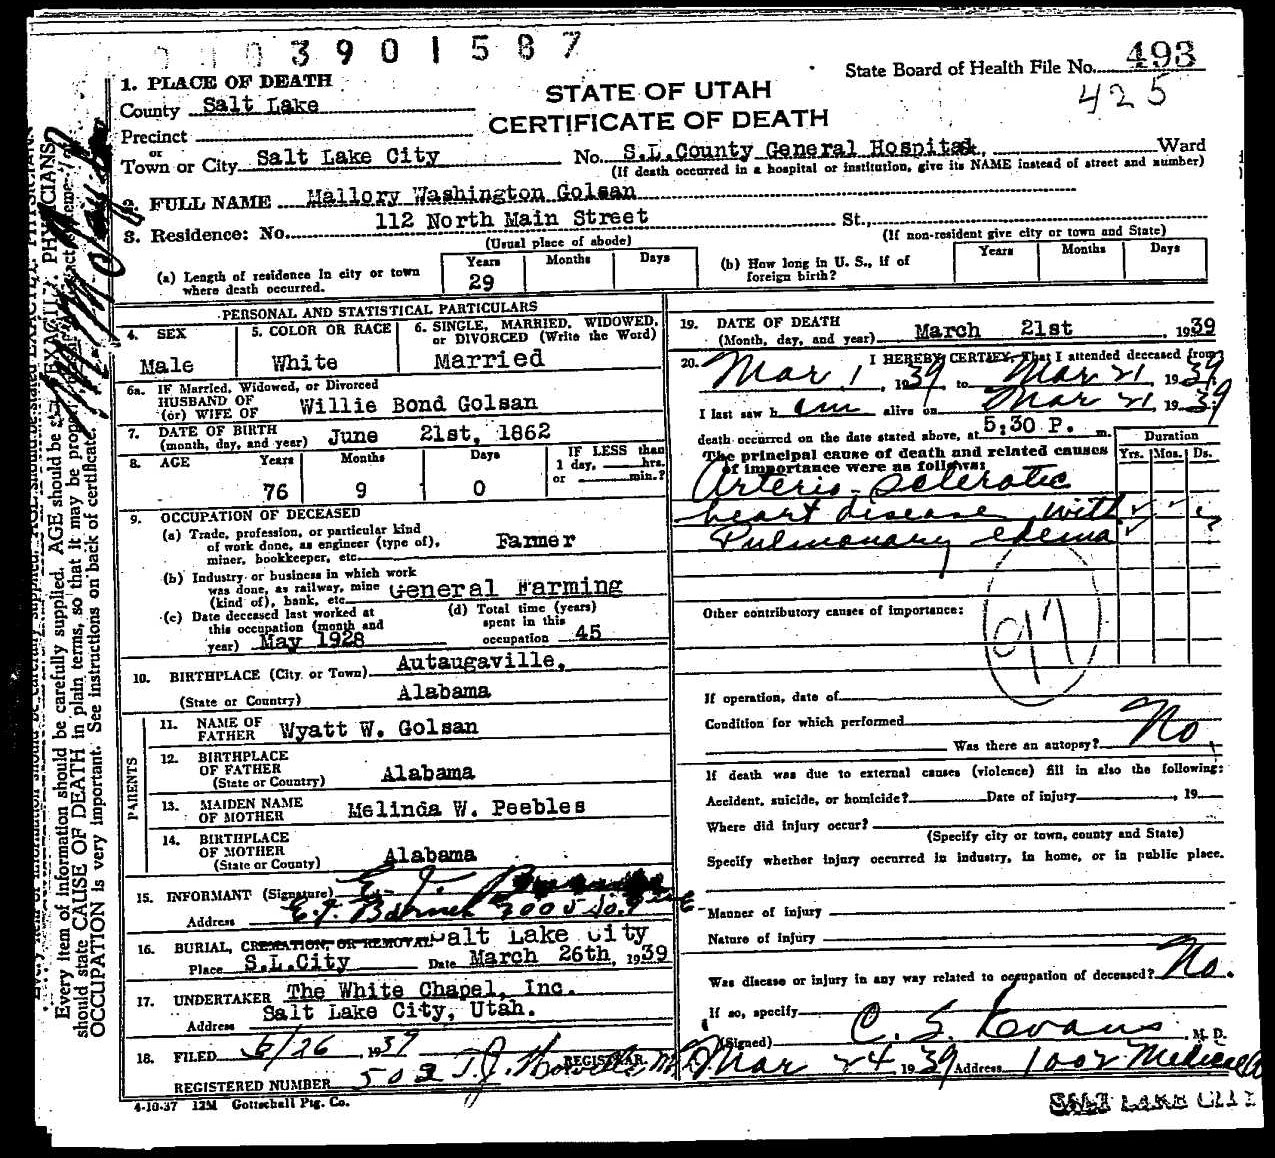 3901587
State Board of Health File No. 493
425
1. PLACE OF DEATH
STATE OF UTAH
CERTIFICATE OF DEATH
County Salt Lake
Precinct
or
Town or City Salt Lake City No. S.L.County General Hospital, Ward
(If death occurred in a hospital or institution, give its NAME instead of street and number)
2. FULL NAME Mallory Washington Golsan
3. Residence: No. 112 North Main Street St.,
(Usual place of abode) (If non-resident give city or town and State)
(a) Length of residence in city or town where death occurred. Years 29 Months Days
(b) How long in U. S., if of foreign birth? Years Months Days
PERSONAL AND STATISTICAL PARTICULARS
4. SEX Male
5. COLOR OR RACE White
6. SINGLE, MARRIED, WIDOWED, or DIVORCED (Write the Word) Married
6a. IF Married, Widowed, or Divorced
HUSBAND OF
(or) WIFE OF Willie Bond Golsan
7. DATE OF BIRTH
(month, day, and year) June 21st, 1862
8. AGE Years 76 Months 9 Days 0 IF LESS than 1 day, hrs. or min.?
9. OCCUPATION OF DECEASED
(a) Trade, profession, or particular kind
of work done, as engineer (type of),
miner, bookkeeper, etc. Farmer
(b) Industry or business in which work
was done, as railway, mine
(kind of), bank, etc. General Farming
(c) Date deceased last worked at
this occupation (month and
year) May 1928
(d) Total time (years)
spent in this
occupation 45
10. BIRTHPLACE (City or Town) Autaugaville,
(State or Country) Alabama
PARENTS
11. NAME OF FATHER Wyatt W. Golsan
12. BIRTHPLACE OF FATHER (State or Country) Alabama
13. MAIDEN NAME OF MOTHER Melinda W. Peebles
14. BIRTHPLACE OF MOTHER (State or County) Alabama
15. INFORMANT (Signature)
Address
16. BURIAL, CREMATION, OR REMOVAL Salt Lake City
Place S.L.City Date March 26th, 1939
17. UNDERTAKER The White Chapel, Inc.
Address Salt Lake City, Utah.
18. FILED /26, 1939 REGISTRAR.
REGISTERED NUMBER 503
4-10-37 12M Gottschall Ptg. Co.
19. DATE OF DEATH
(Month, day, and year) March 21st, 1939
20. I HEREBY CERTIFY, That I attended deceased from
Mar 1, 1939 to Mar 21, 1939
I last saw h im alive on Mar 21, 1939
death occurred on the date stated above, at 5;30 P. m.
The principal cause of death and related causes
of importance were as follows:
Duration
Yrs. Mos. Ds.
Arterio-sclerotic
heart disease with
Pulmonary edema
Other contributory causes of importance:
If operation, date of
Condition for which performed
Was there an autopsy? No
If death was due to external causes (violence) fill in also the following:
Accident, suicide, or homicide? Date of injury , 19
Where did injury occur?
(Specify city or town, county and State)
Specify whether injury occurred in industry, in home, or in public place.
Manner of injury
Nature of injury
Was disease or injury in any way related to occupation of deceased? No.
If so, specify
(Signed) C. S. Evans M. D.
Mar 24 1939 Address 1002 Medical
SALT LAKE CITY
Every item of information should be carefully supplied. AGE should be stated EXACTLY. PHYSICIANS
should state CAUSE OF DEATH in plain terms, so that it may be properly
OCCUPATION is very important. See instructions on back of certificate.